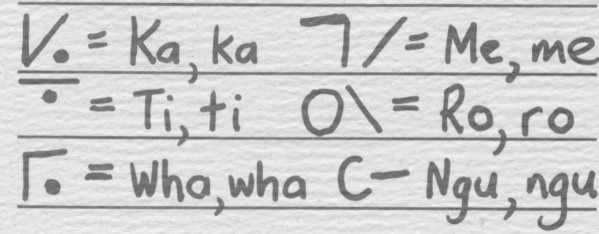 = Ka, ka = Me, me
= Ti, ti O\ = Ro, ro
= Wha, wha C— Ngu, ngu